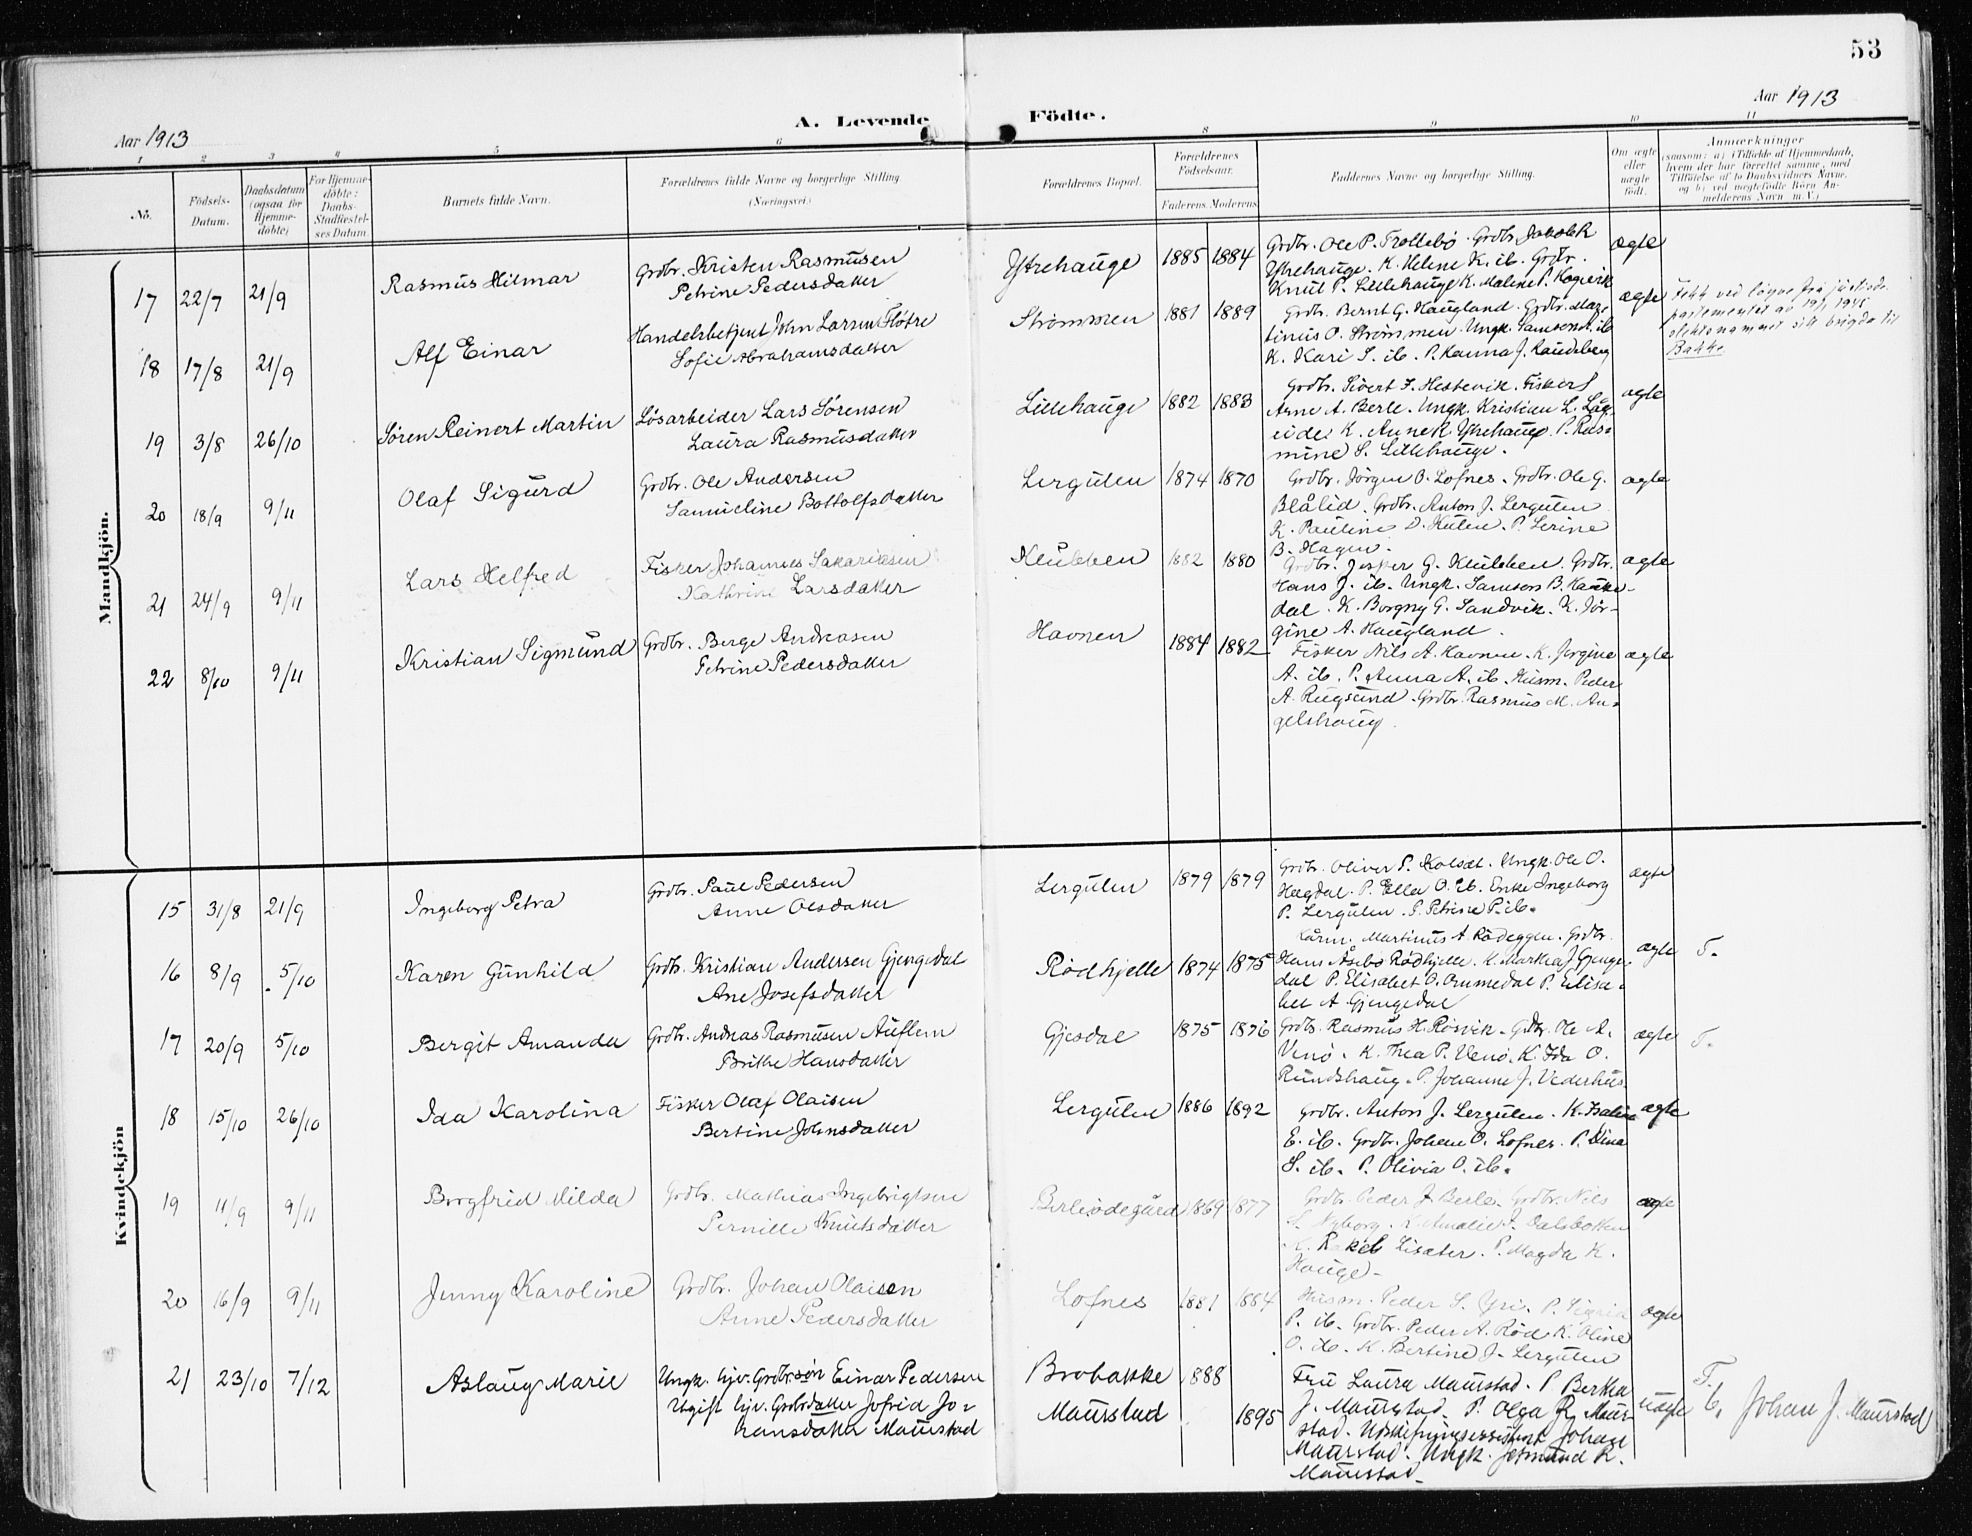 53
Aar 1913
A. Levende Födte.
Aar 1913
1 2 3 4 5 6 8 9 10 11
No.
Födsels-Datum.
Daabsdatum (ogsaa for Hjemme-döbte)
For Hjemme-döbte: Daabs-Stadfæstel-ses Datum.
Barnets fulde Navn.
Forældrenes fulde Navne og borgerlige Stilling (Næringsvei.)
Forældrenes Bopæl.
Forældrenes Födselsaar.
Faderens. Moderens.
Faddernes Navne og borgerlige Stilling.
Om ægte eller uægte födt.
Anmærkninger
(saasom: a) i Tilfælde af Hjemmedaab,
hvem der har forrettet samme, med
Tilföielse af to Daabsvidners Navne,
og b) ved uegtefödte Börn An-
melderens Navn m. V.)
Mandkjön.
17 22/7 21/9 Rasmus Hilmar
Grdbr. Kristen Rasmusen
Petrine Pedersdatter
Ytrehauge 1885 1884
Grdbr. Ole P. Trollebø. Grdbr. Jakob R
Ytrehauge. K. Helene K. ib. Grdbr.
Knut P. Lillehauge K. Malene P. Hogevik
ægte
18 17/8 21/9 Alf Einar
Handelsbetjent John Larsen Fløtre
Sofie Abrahamsdatter
Strømmen 1881 1889
Grdbr. Bernt G. Haugland. Grdbr. Mar-
tinus O. Strømmen. Ungk. Samson M. ib
K. Kari S. ib. P. Hanna J. Raudeberg
ægte
Fekk ved løyve frå Justisde-
partementet av 19/1 1945
slektsnamnet sitt brigda til
Bakke.
19 3/8 26/10 Søren Reinert Martin
Løsarbeider Lars Sørensen
Laura Rasmusdatter
Lillehauge 1882 1883
Grdbr. Sivert J. Hestevik. Fisker
Arne A. Berle. Ungk. Kristian L. Låg-
eide. K. Anne R. Ytrehauge. P. Ras-
mine S. Lillehauge.
ægte
20 18/9 9/11 Olaf Sigurd
Grdbr. Ole Andersen
Samueline Bottolfsdatter
Lergulen 1874 1870
Grdbr. Jørgen O. Lofnes. Grdbr. Ole G.
Blålid. Grdbr. Anton J. Lergulen
K. Pauline D. Hulen. P. Serine
B. Hagen.
ægte
21 24/9 9/11 Lars Helfred
Fisker Johannes Sakariasen
Kathrine Larsdatter
Klubben 1882 1880
Grdbr. Jesper G. Klubben. Grdbr.
Hans J. ib. Ungk. Samson B. Hauke-
dal. K. Borgny G. Sandvik. K. Jør-
gine A. Haugland.
ægte
22 8/10 9/11 Kristian Sigmund
Grdbr. Berge Andreasen
Petrine Pedersdatter
Havnen 1884 1882
Fisker Nils A. Havnen. K. Jørgine
A. ib. P. Anna A. ib. Husm. Peder
A. Rugsund. Grdbr. Rasmus M. An-
gelshaug.
ægte
Kvindekjön
15 31/8 21/9 Ingeborg Petra
Grdbr. Paul Pedersen
Anne Olsdatter
Lergulen 1879 1879
Grdbr. Oliver P. Kolset. Ungk. Ole O.
Hægdal. P. Ella O. ib. Enke Ingeborg
P. Lergulen. P. Petrine P. ib.
ægte
16 8/9 5/10 Karen Gunhild
Grdbr. Kristian Andersen Gjengedal
Ane Josefsdatter
Rødhjelle 1874 1875
Kårm. Martinus A Rødeggen. Grdbr.
Hans Åsebø Rødhjelle. K. Martha J Gjenge-
dal P. Elisabet O. Ommedal P. Elisa-
bet A Gjengedal
ægte T.
17 20/9 5/10 Bergit Amanda
Grdbr. Andreas Rasmusen Auflem
Brithe Hansdatter
Gjesdal 1875 1876
Grdbr. Rasmus H. Røsvik. Grdbr. Ole A.
Venø. K. Thea P. Venø. K. Ida O.
Rundshaug. P. Johanne J. Vederhus
ægte T.
18 15/10 26/10 Ida Karolina
Fisker Olaf Olaisen
Bertine Johnsdatter
Lergulen 1886 1892
Grdbr. Anton J. Lergulen. K. Isaline
E. ib. Grdbr. Johan O. Lofnes. P. Dina
S. ib. P. Olivia O. ib.
ægte
19 11/9 9/11 Borgfrid Milda
Grdbr. Mathias Ingebrigtsen
Pernille Knutsdatter
Berleødegård 1869 1877
Grdbr. Peder J. Berle. Grdbr. Nils
S. Nyborg. K. Amalie J. Dalsbotten
K. Rakel Lisæter. P. Magda K.
Hauge.
ægte
20 16/9 9/11 Jenny Karoline
Grdbr. Johan Olaisen
Anne Pedersdatter
Lofnes 1881 1884
Husm. Peder S. Yri. P. Signia
P. ib. Grdbr. Peder A. Rød K. Oline
O. ib. K. Bertine J. Lergulen
ægte
21 23/10 7/12 Aslaug Marie
Ungk. hjv. Grdbr.søn Einar Pedersen
Ugift hjv. Grdbrdatter Jofrid Jo-
hansdatter Maurstad
Brobakke 1888
Maurstad 1895
Fru Laura Maurstad. P Berthe
J. Maurstad. P. Olga R. Maur-
stad. Udskiftningsassistent Johan
Maurstad. Ungk. Jetmund R.
Maurstad.
uægte
T.
b, Johan J. Maurstad